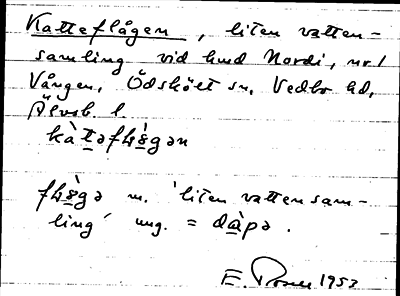 Katteflågen, liten vatten-
samling vid hmd Nordi, nr 1
Vången, Ödskölt sn, Vedbo hd,
Älvsb. l.
kàt̲əfɫs̲̀gən
fls̲̀gə m. 'liten vattensam-
ling' ung. = dà̲pə.
E. 1953